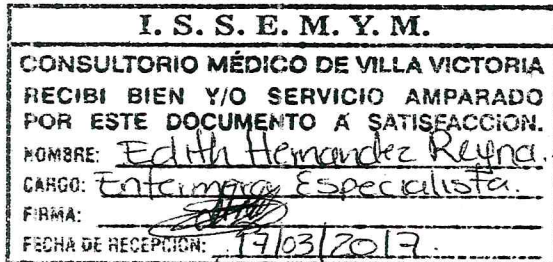 I. S. S. E. M. Y. M.
CONSULTORIO MÉDICO DE VILLA VICTORIA
RECIBI BIEN Y/O SERVICIO AMPARADO
POR ESTE DOCUMENTO A SATISFACCION.
NOMBRE: Edith Hernandez Reyna.
CARGO: Enfermera Especialista.
FIRMA:
FECHA DE RECEPCIÓN: 17/03/2017.